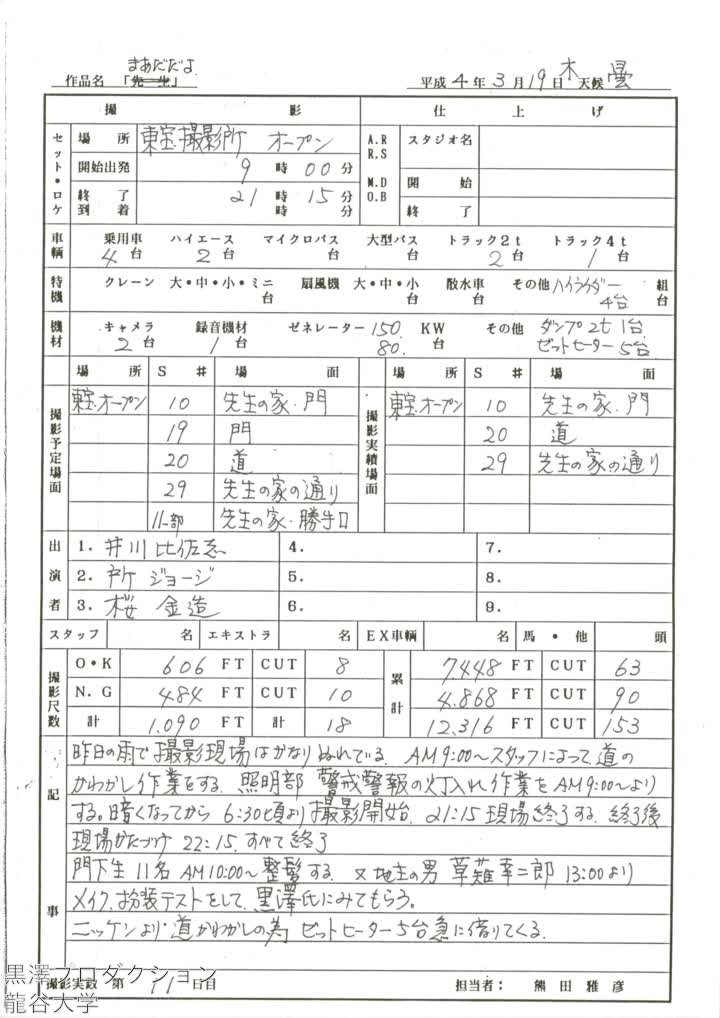 まあだだよ
作品名 「先生」 平成 4 年 3 月 19 日 木 天候 曇
撮 影 仕 上 げ
セット・ロケ 場 所 東宝撮影所 オープン A.R R.S M.D O.B スタジオ名
開始出発 9 時 00 分
終 了 21 時 15 分 開 始
到 着 時 分 終 了
車輌 乗用車 4台 ハイエース 2台 マイクロバス 台 大型バス 台 トラック2t 2台 トラック4t 1台
特機 クレーン 大・中・小・ミニ 台 扇風機 大・中・小 台 散水車 台 その他 ハイライダー 4台 組 台
機材 キャメラ 2台 録音機材 1台 ゼネレーター 150. 80. KW 台 その他 ダンプ2t 1台 ゼットヒーター 5台
場 所 S # 場 面 場 所 S # 場 面
撮影予定場面 東宝・オープン 10 先生の家・門 撮影実績場面 東宝・オープン 10 先生の家・門
19 門 20 道
20 道 29 先生の家の通り
29 先生の家の通り
11一部 先生の家・勝手口
出演者 1. 井川比佐志 4. 7.
2. 所 ジョージ 5. 8.
3. 桜 金造 6. 9.
スタッフ 名 エキストラ 名 EX車輌 名 馬・他 頭
撮影尺数 O・K 606 FT CUT 8 累計 7.448 FT CUT 63
N.G 484 FT CUT 10 4.868 FT CUT 90
計 1.090 FT 計 18 12.316 FT CUT 153
記事
昨日の雨で撮影現場はかなりぬれている。AM9:00〜スタッフによって道の
かわかし作業をする. 照明部 警戒警報の灯入れ作業をAM9:00〜より
する。暗くなってから 6:30頃より撮影開始. 21:15 現場終了する. 終了後
現場かたづけ 22:15. すべて終了
門下生 11名 AM10:00〜 整髪する. 又 地主の男 草薙幸二郎 13:00より
メイク. 衣装テストをして. 黒澤氏にみてもらう。
ニッケンより・道かわかしの為 ゼットヒーター5台急に借りてくる.
撮影実数 第 11 日目 担当者: 熊田雅彦
黒澤プロダクション
龍谷大学